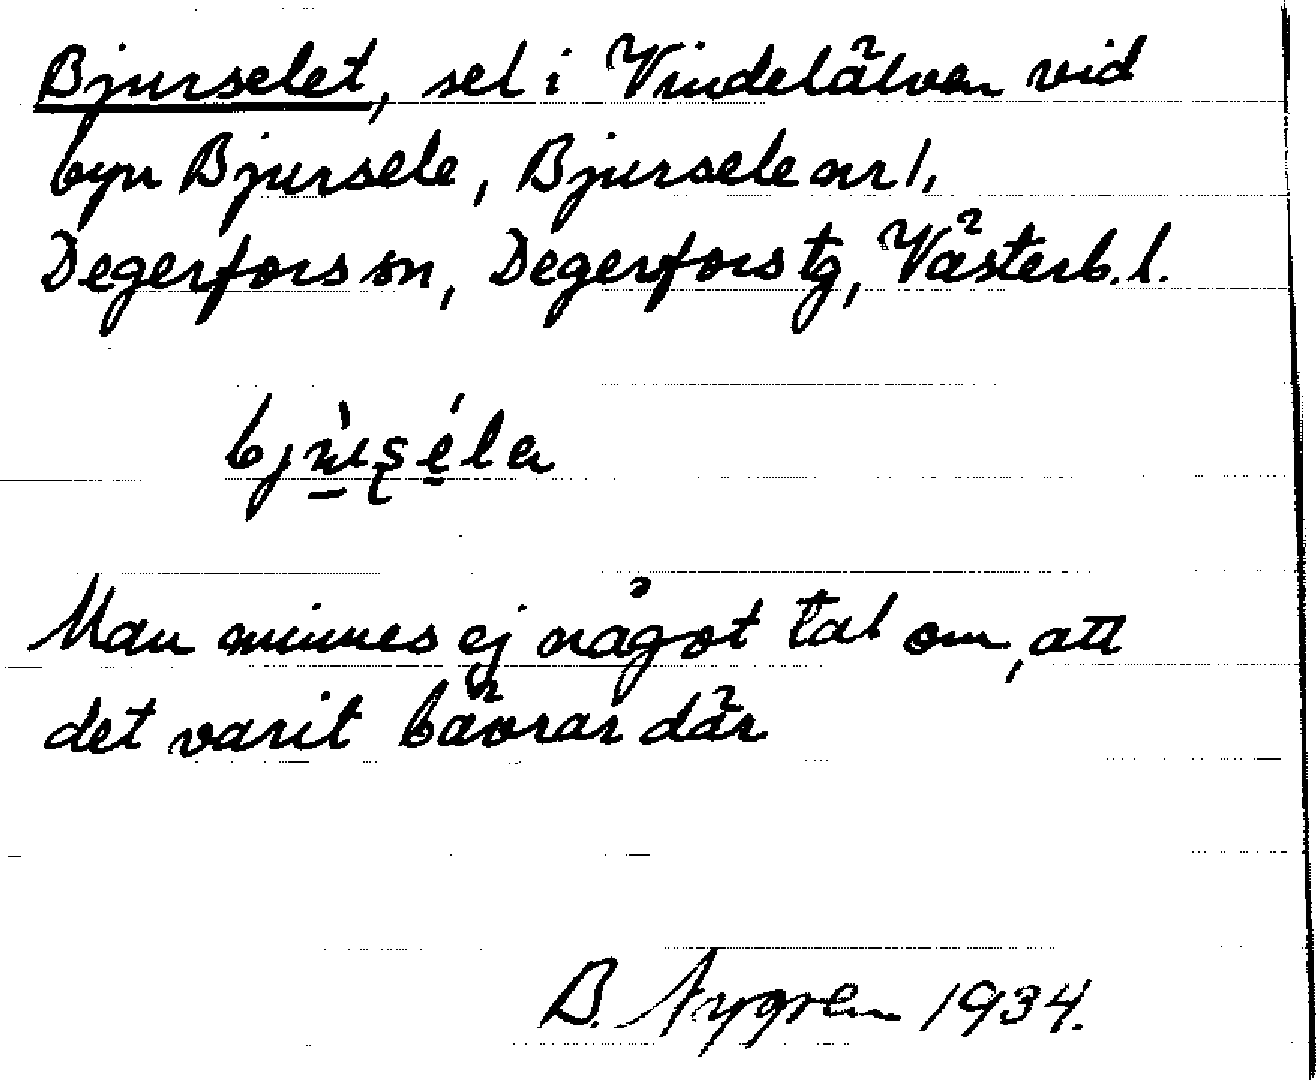 Bjurselet, sel i Vindelälven vid
byn Bjursele, Bjursele nr 1,
Degerfors sn, Degerfors tg, Västerb. l.
Man minnes ej något tal om, att
det varit bävrar där
B. Nygren 1934.